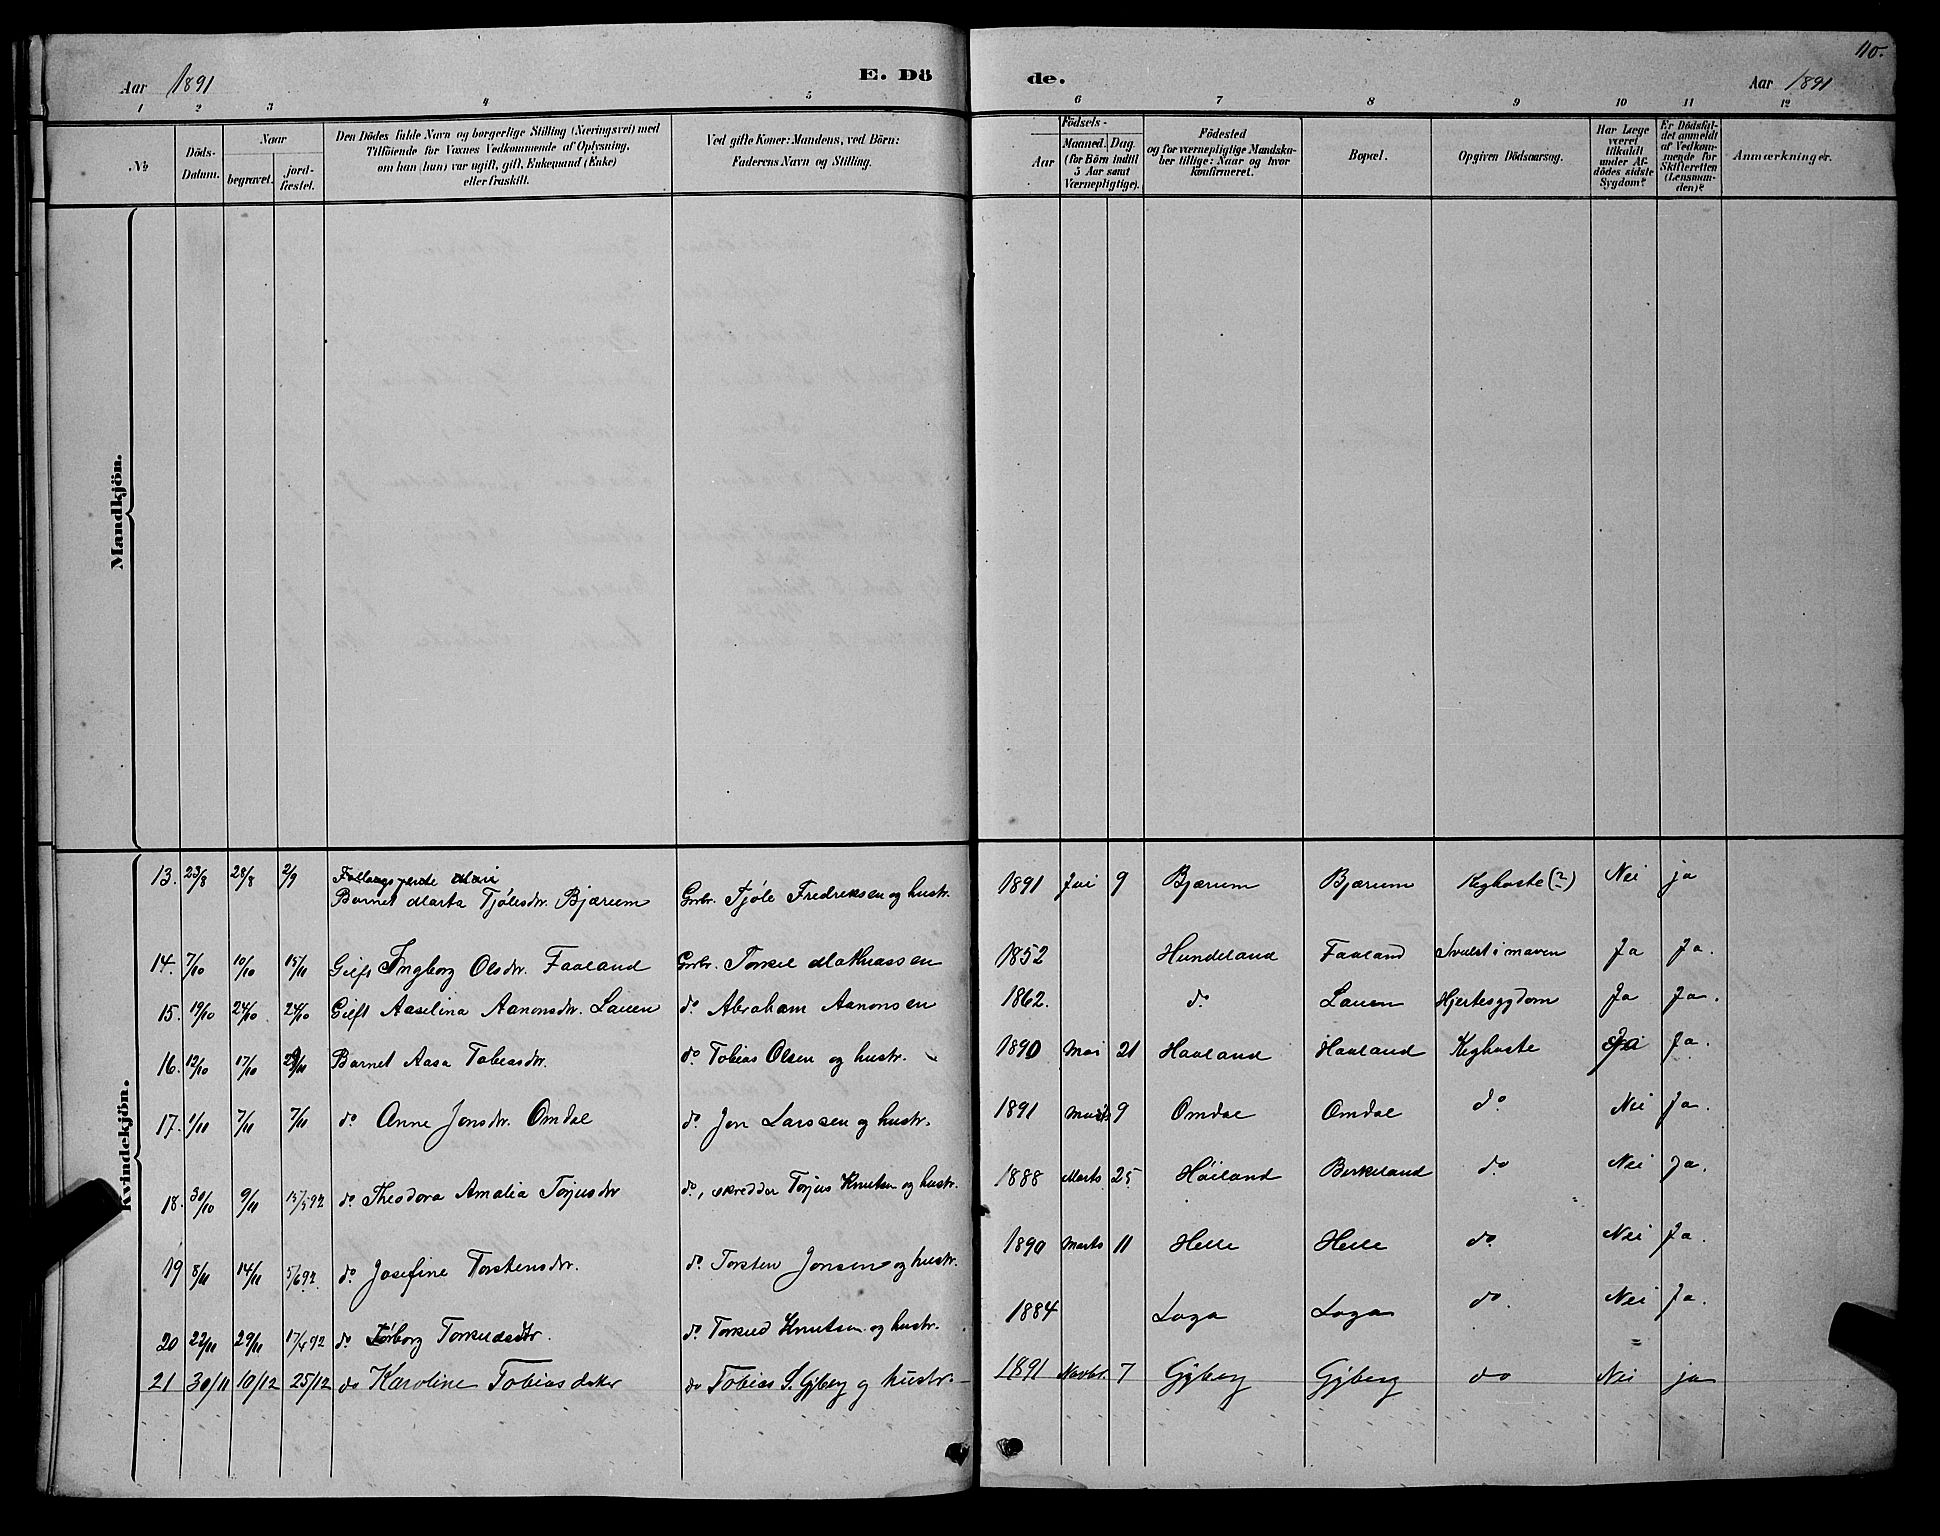 110.
Aar 1891
E. Dö de.
Aar 1891
1 2 3 4 5 6 7 8 9 10 11 12
No
Döds-Datum.
Naar
begravet.
jord-fæstet.
Den Dödes fulde Navn og borgerlige Stilling (Næringsvei) med
Tilföiende for Voxnes Vedkommende af Oplysning,
om han (hun) var ugift, gift, Enkemand (Enke)
eller fraskilt.
Ved gifte Koner: Mandens, ved Börn:
Faderens Navn og Stilling.
Födsels-
Aar
Maaned. Dag.
(for Börn indtil
5 Aar samt
Værnepligtige).
Födested
og for værnepligtige Mandska-
ber tillige: Naar og hvor
konfirmeret.
Bopæl.
Opgiven Dödsaarsag.
Har Læge
været
tilkaldt
under Af-
dödes sidste
Sygdom?
Er Dödsfal-
det anmeldt
af Vedkom-
mende for
Skifteretten
(Lensman-
den)?
Anmærkninger.
Mandkjön.
Kvindekjön.
13. 23/8 28/8 2/9 Barnet Marta Tjölsdtr. Bjærum Grbr. Tjöls Fredriksen og hustr. 1891 9 Bjærum Bjærum Kighoste (?) Nei ja
14. 7/10 10/10 15/11 Gift Ingborg Olsdtr. Faaland Grbr. Torkel Markussen 1852 Hundeland Faaland Svulst i maven Ja Ja.
15. 19/10 24/10 24/10 Gift Aaselina Aanonsdtr. Lauen do. Abraham Aanonsen 1862. do Lauen Hjertesygdom Ja Ja.
16. 12/10 17/10 Barnet Aasa Tobiasdtr. do Tobias Olsen og hustr. 1890 Mai 21 Haaland Haaland Kighoste Ja.
17. 1/11 7/11 7/11 do Anne Jonsdtr. Omdal do. Jon Larssen og hustr. 1891 9 Omdal Omdal do Nei Ja.
18. 30/10 9/11 15/5 92 do Theodora Amalia Torjusdtr do, skrædder Torjus Knutsen og hustr. 1888 Marts 25 Höiland Birkeland do Nei Ja.
19 8/11 14/11 5/6 92 do Josefine Torstensdtr. do Torsten Jonsen og hustr. 1890 Marts 11 Helle Helle do Nei Ja.
20 22/11 29/11 17/4 92 do Torborg Torkildsdtr. do Torkild Knutsen og hustr. 1884 Loga Loga do. Nei Ja.
21 30/11 10/12 25/12 do Karoline Tobiasdater do Tobias S. Gyberg og hustr. 1891 Novbr. 7 Gyberg Gyberg do Nei ja